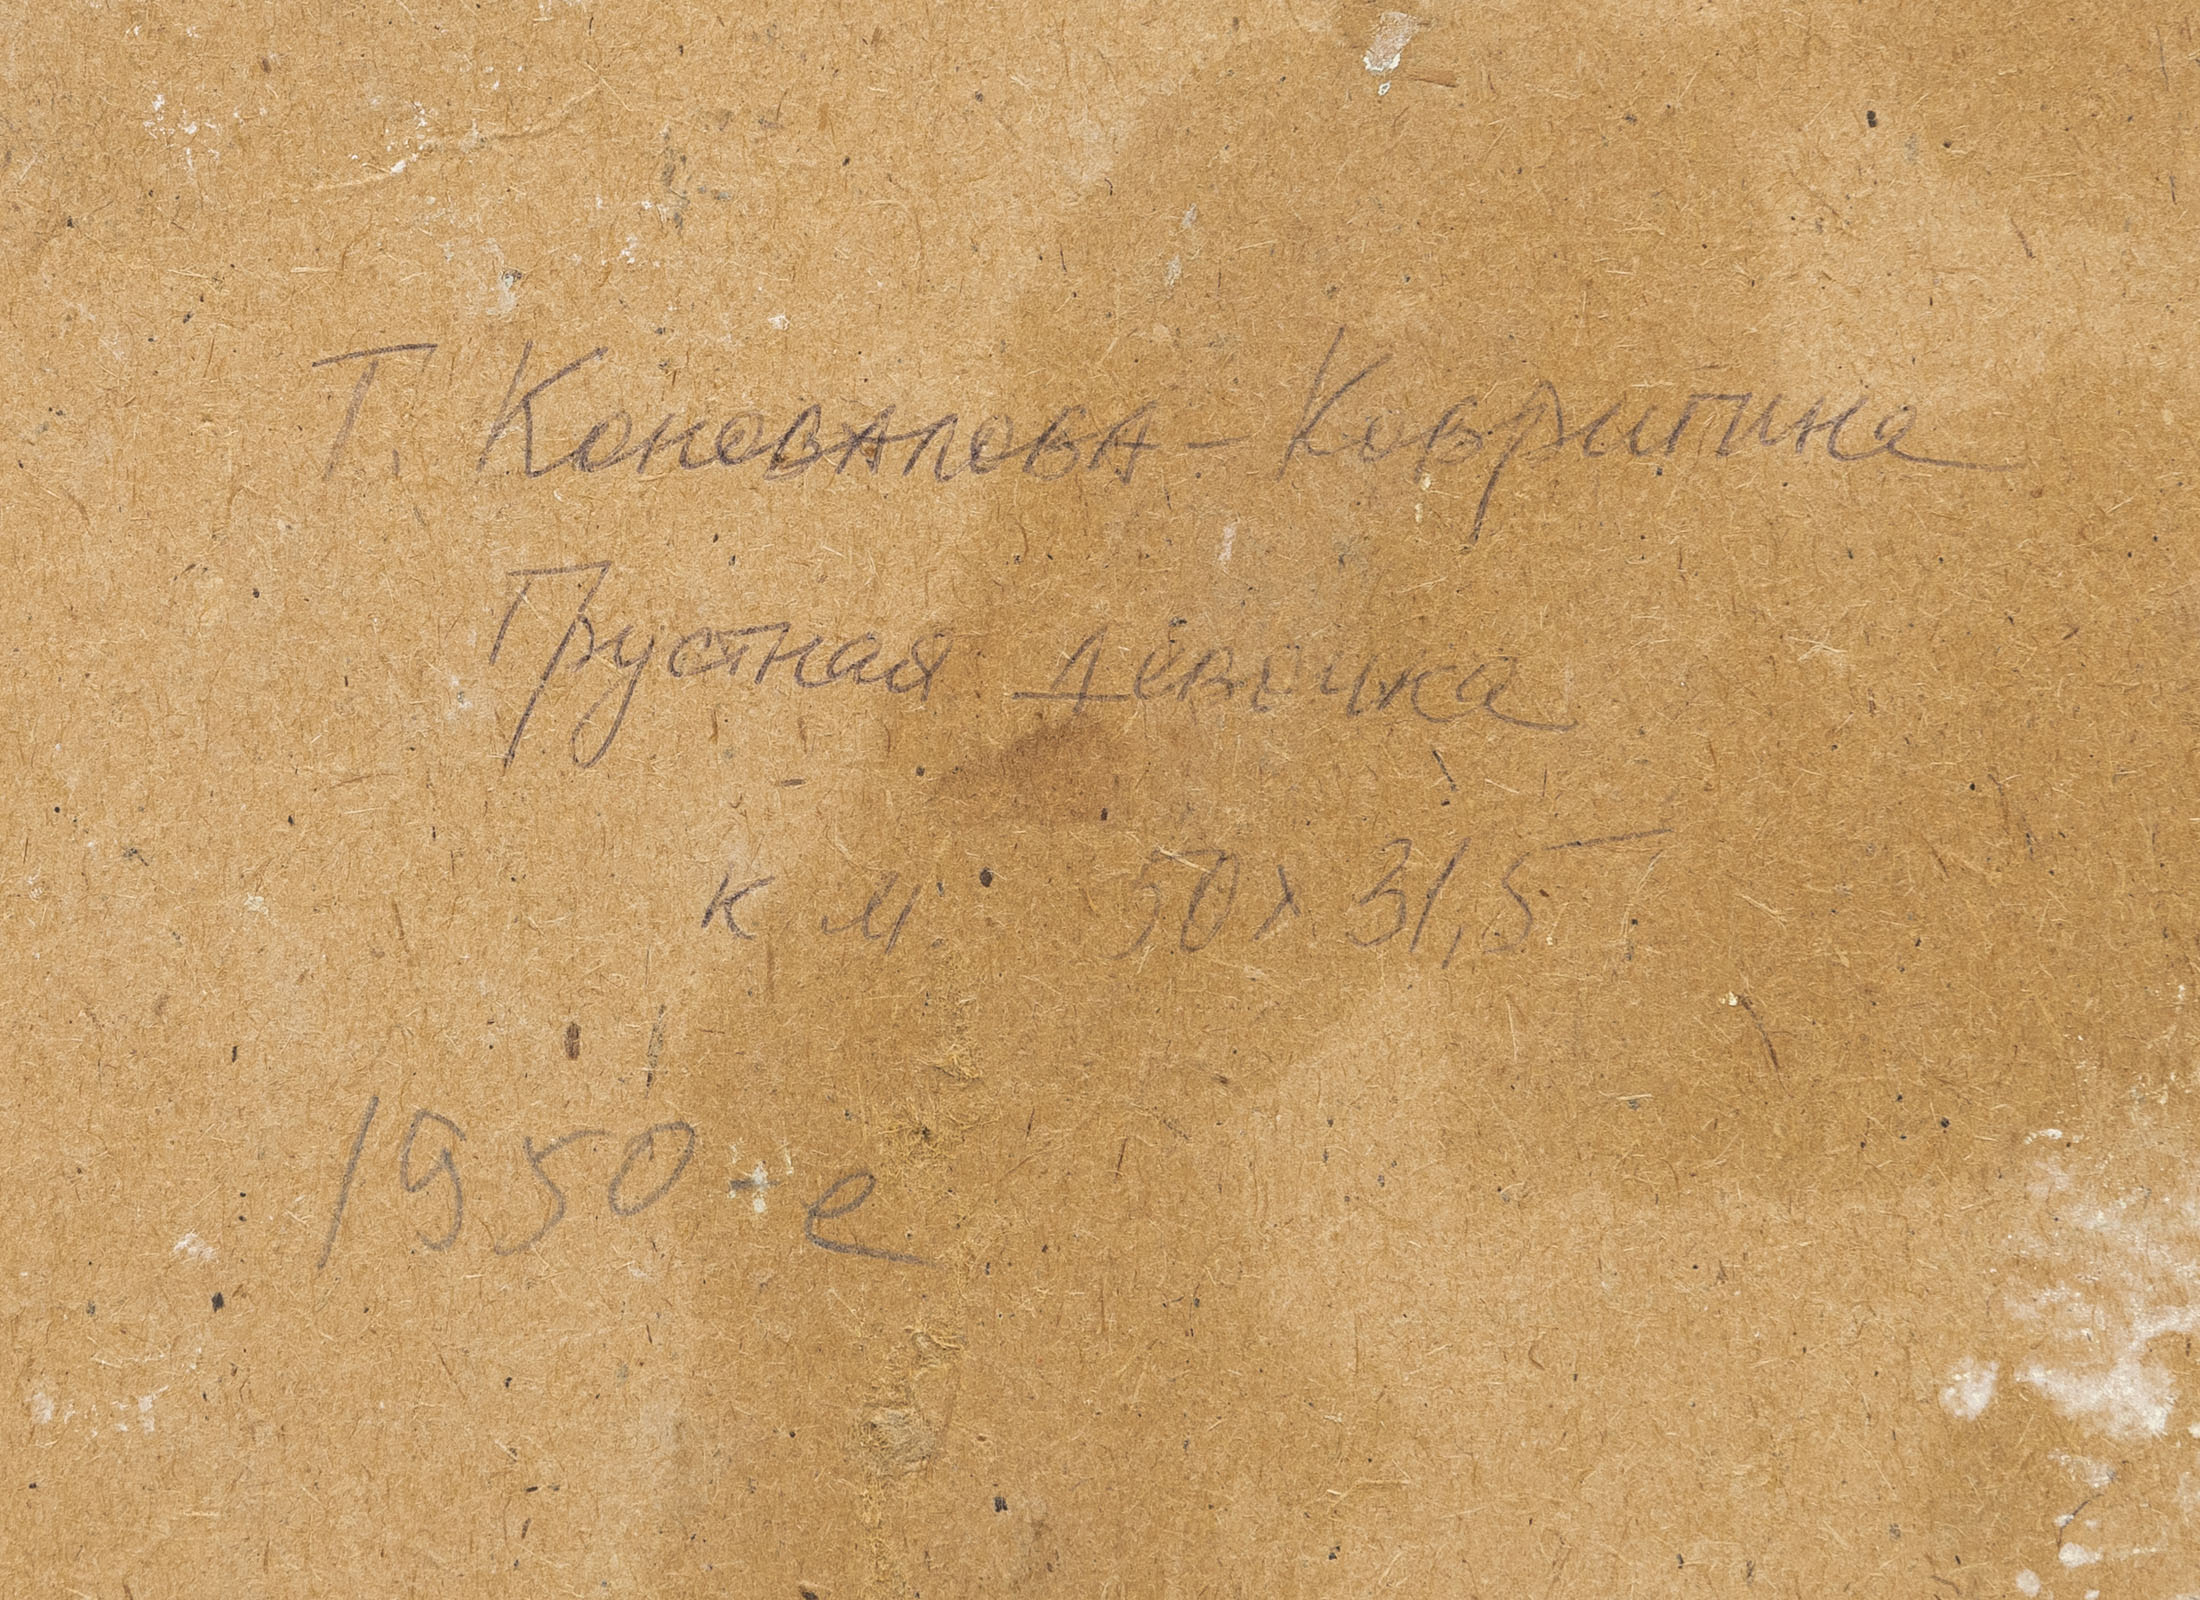 Т. Коновалова-Ковригина
Грустная девочка
к м. 50х31,5
1950-е